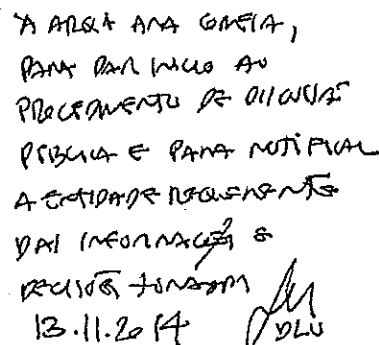 À ARQª ANA CORREIA,
PARA DAR INICIO AO
PROCEDIMENTO DE DISCUSSÃO
PÚBLICA E PARA NOTIFICAR
A ENTIDADE REQUERENTE
DAS INFORMAÇÕES E
DECISÕES TOMADAS
13.11.2014
DLU